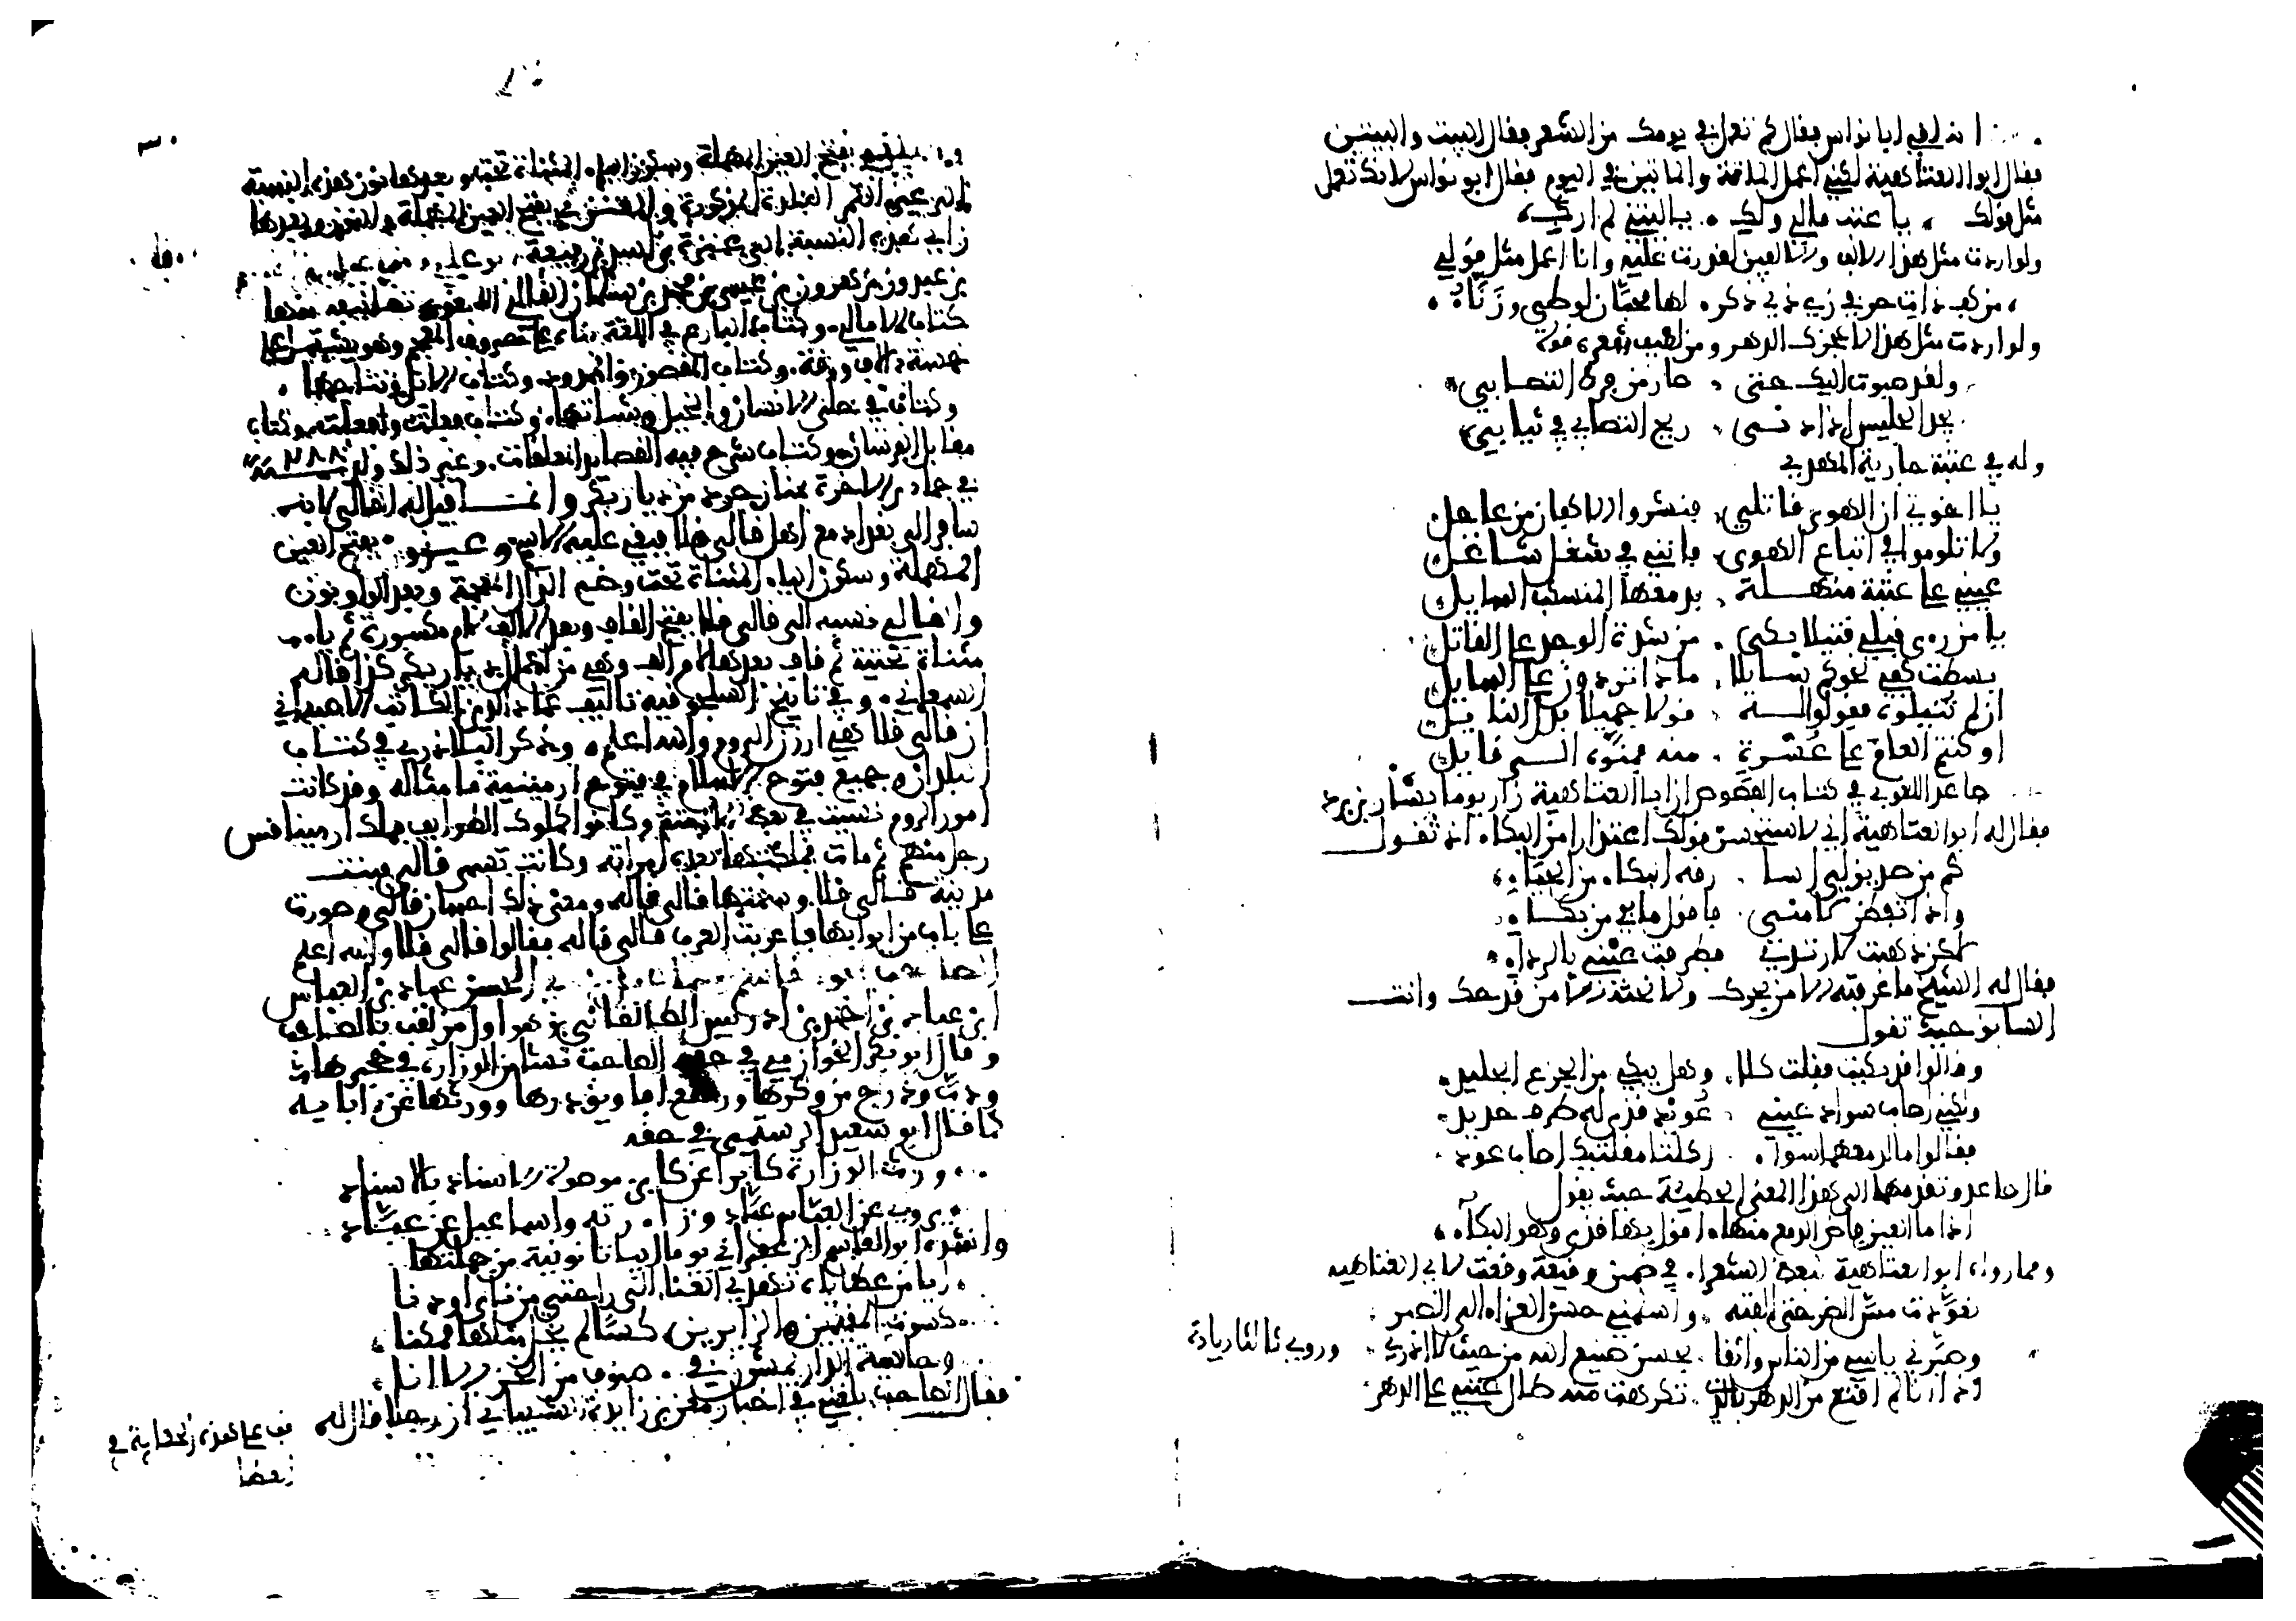 انه لقي ابا نواس فقال كم تعمل في يومك من الشعر فقال البيت والبيتين
فقال ابو العتاهية لكني اعمل المائة والمائتين في اليوم فقال ابو نواس لانك تعمل
مثل قولك يا عتب مالي ولك يا ليتني لم ارك
ولو اردت مثل هذا الالف والالفين لقدرت عليه وانا اعمل مثل قولي
من كف ذات حر في زي ذي ذكر لها محبان لوطي وزناء
ولو اردت مثل هذا لاعجزك الدهر ومن لطيف شعره قوله
ولقد صبوت اليك حتى صار من فرط التصابي
يجد الجليس اذا دنى ريح التصابي في ثيابي
وله في عتبة جارية المهدي
يا اخوتي ان الهوى قاتلي فبشروا الاكفان من عاجل
ولا تلوموا في اتباع الهوى فانني في شغل شاغل
عيني على عتبة منهلة بدمعها المنسكب السايل
يا من رءى قبلي قتيلا بكى من شدة الوجد على القاتل
بسطت كفي نحوكم سايلا ماذا تردون على السايل
ان لم تنيلوه فقولوا له قولا جميلا بدل النايل
او كنتم العام على عسرة منه فمنوه الى قابل
صاعد اللغوي في كتاب الفصوص ان ابا العتاهية زار يوما بشار بن برد
فقال له ابو العتاهية اني لاستحسن قولك اعتذارا من البكاء اذ تقول
كم من صديق لي اسا رقه البكاء من الحياء
واذا تفطن لامني فاقول ما بي من بكاء
لكن ذهبت لارتدي فطرفت عيني بالرداء
فقال له الشيخ ما غرفته الا من بحرك ولا نحته الا من قدحك وانت
السابق حيث تقول
وقالوا قد بكيت فقلت كلا وهل يبكي من الجزع الجليد
ولكني اصاب سواد عيني عويد قذى له طرف حديد
فقالوا ما لدمعهما سواء اكلتا مقلتيك اصاب عود
قال صاعد وتقدمهما الى هذا المعنى الحطيئة حيث يقول
اذا ما العين فاض الدمع منها اقول بها قذى وهو البكاء
ومما رواه ابو العتاهية لبعض الشعراء في
تعودت مس الضر حتى الفته واسلمني حسن العزاء الى الصبر
وصيرني ياسي من الناس واثقا بحسن صنيع الله من حيث لا ادري
وروي ثالثا زيادة
اذا انا لم اقنع من الدهر بالذي تكرهت منه طال عتبي على الدهر
بفتح العين المهملة وسكون الياء المثناة تحت وبعدها نون هذه النسبة
زاي هذه النسبة الى عنزة بن اسد بن ربيعة
بن عيذون بن هرون بن عيسى بن محمد بن سلمان القالي اللغوي
كتاب الامالي وكتاب البارع في اللغة بناه على حروف المعجم وهو يشتمل على
خمسة الاف ورقة وكتاب المقصور والممدود وكتاب الابل ونتاجها
وكتاب في حلي الانسان والخيل وشياتها وكتاب فعلت وافعلت وكتاب
مقاتل الفرسان وكتاب شرح فيه القصايد المعلقات وغير ذلك ولد سنة ٢٨٨
في جمادى الاخرة بمنازجرد من ديار بكر وانما قيل له القالي لانه
سافر الى بغداد مع اهل قالي قلا فبقي عليه الاسم وعيذون بفتح العين
المهملة وسكون الياء المثناة تحت وضم الذال المعجمة وبعد الواو نون
والقالي نسبه الى قالي قلا بفتح القاف وبعد الالف لام مكسورة ثم ياء
مثناة تحتية ثم قاف بعدها لام الف وهي من اعمال ديار بكر كذا قاله
السمعاني وفي تاريخ السلجوقية تاليف عماد الدين الكاتب الاصبهاني
ان قالي قلا هي ارزن الروم والله اعلم وذكر البلاذري في كتاب
البلدان وجميع فتوح الاسلام في فتوح ارمينية ما مثاله وقد كانت
امور الروم تشتت في بعض الازمنة وكانوا كملوك الطوايف فملك ارمينافس
رجل منهم ثم مات فملكتها بعده امراته وكانت تسمى قالي فبنت
مدينة قالي قلا وسمتها قالي قاله ومعنى ذلك احسان قالي وصورت
على باب من ابوابها فاعربت العرب قالي قاله فقالوا قالي قلا والله اعلم
ابن عباد بن احمد بن ادريس الطالقاني هو اول من لقب بالصاحب
وقال ابو بكر الخوارزمي في حقه الصاحب نشا من الوزارة في حجرها
ودب ودرج من وكرها ورضع افاويق درها وورثها عن ابايه
كما قال ابو سعيد الرستمي في حقه
ورث الوزارة كابرا عن كابر موصولة الاسناد بالاسناد
يروي عن العباس عباد وزارته واسماعيل عن عباد
وانشده ابو القاسم الزعفراني يوما ابياتا نونية من جملتها
ايا من عطاياه تهدي الغنا الى راحتي من ناى او دنا
كسوت المقيمين والزايرين كسا لم يخل مثلها ممكنا
وحاشية الدار يمشون في صنوف من الخز الا انا
فقال الصاحب بلغني في اخبار معن بن زايدة الشيباني ان رجلا قال له
قف على هذه الحكاية في